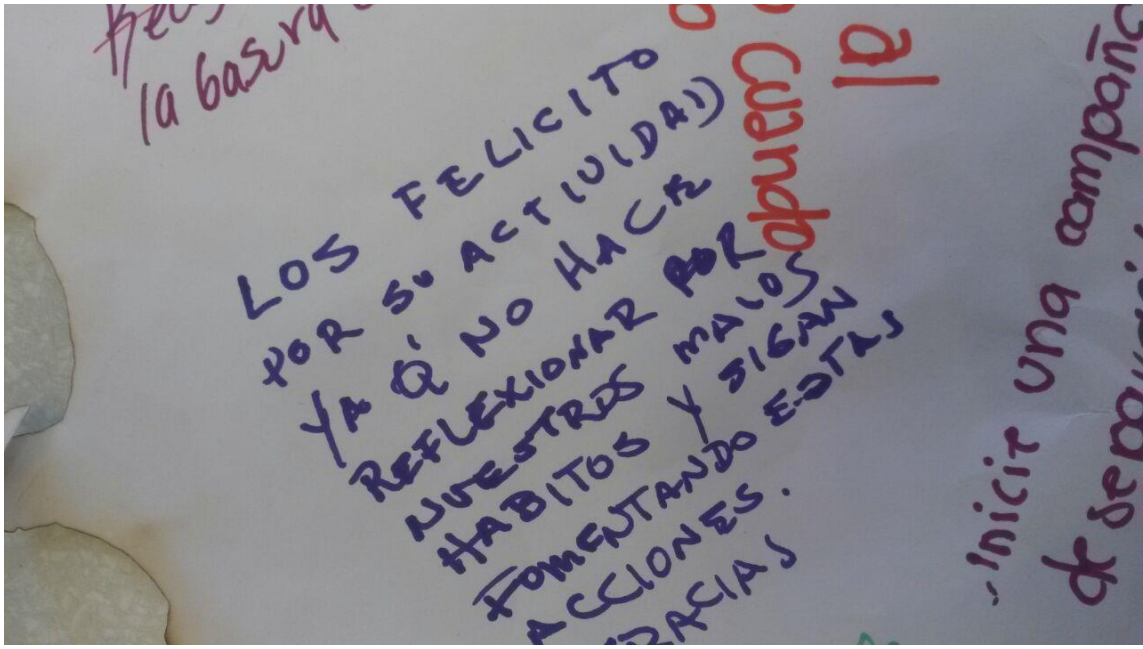 la basura
LOS FELICITO
POR SU ACTIVIDAD
YA Q' NO HACE
REFLEXIONAR POR
NUESTROS MALOS
HABITOS Y SIGAN
FOMENTANDO ESTAS
ACCIONES.
GRACIAS
al
cuando
Inicir una compaña
de